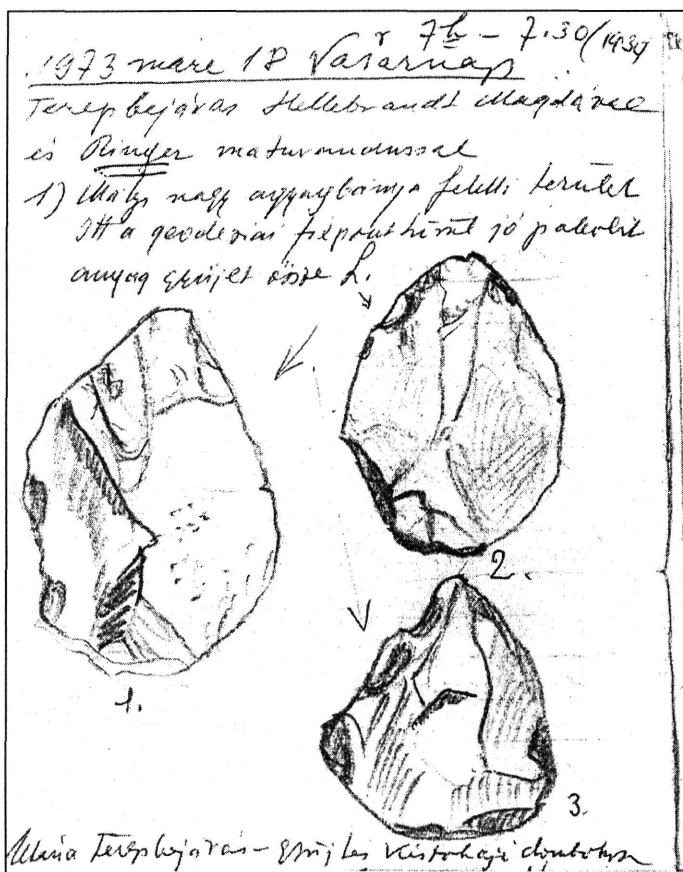 r 7h – 7.30/(1930)
1973 márc 18 Vasárnap
Terepbejárás Hellebrandt Magdával
és Ringer maturandussal
1) Mályi nagy agyagbánya feletti terület
Itt a geodéziai jó paleolit
anyag gyűjt össze L.
1.
2.
3.
Utána Terepbejárás – gyűjtés Kistokaji dombokon